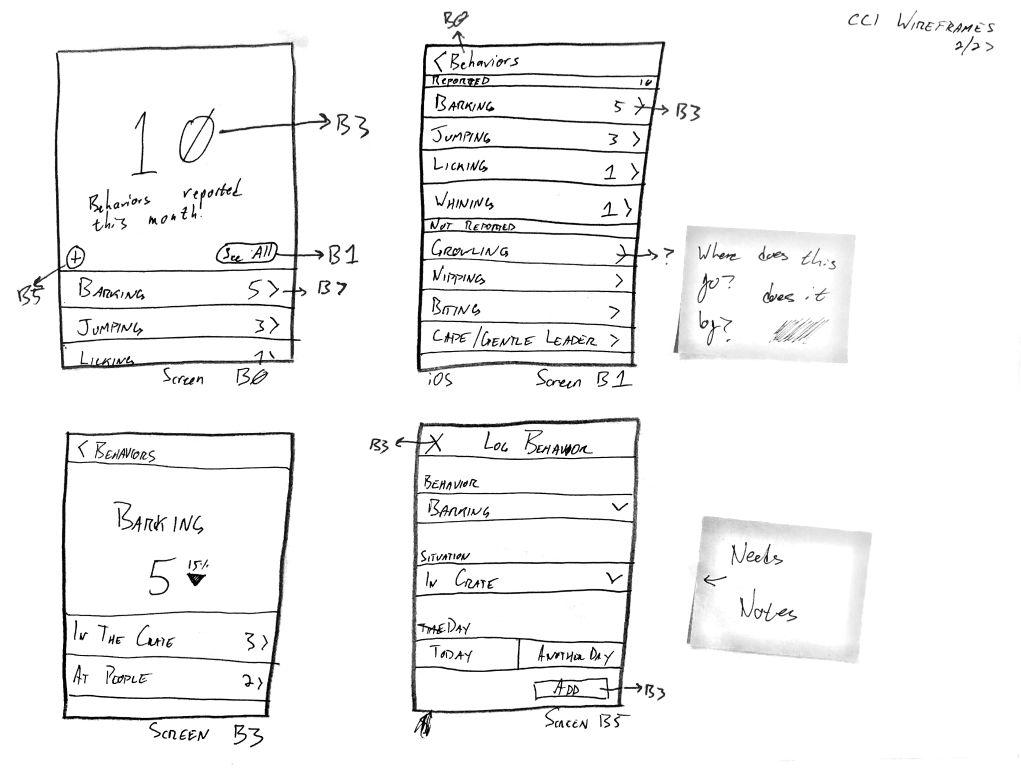 CCI WIREFRAMES
2/27
10
→ B3
Behaviors reported
this month!
+
See All
→ B1
B5
BARKING 5 >
JUMPING 3 >
LICKING 1 >
Screen B0
B0
< Behaviors
REPORTED 10
BARKING 5 > → B3
JUMPING 3 >
LICKING 1 >
WHINING 1 >
NOT REPORTED
GROWLING > → ?
NIPPING >
BITING >
CAPE/GENTLE LEADER >
iOS Screen B1
Where does this
go? does it
by?
< BEHAVIORS
BARKING
5 15% ▼
IN THE CRATE 3 >
AT PEOPLE 2 >
SCREEN B3
B3 ← X LOG BEHAVIOR
BEHAVIOR
BARKING
SITUATION
IN CRATE
DAY
TODAY ANOTHER DAY
ADD → B3
SCREEN B5
Needs
←
Notes